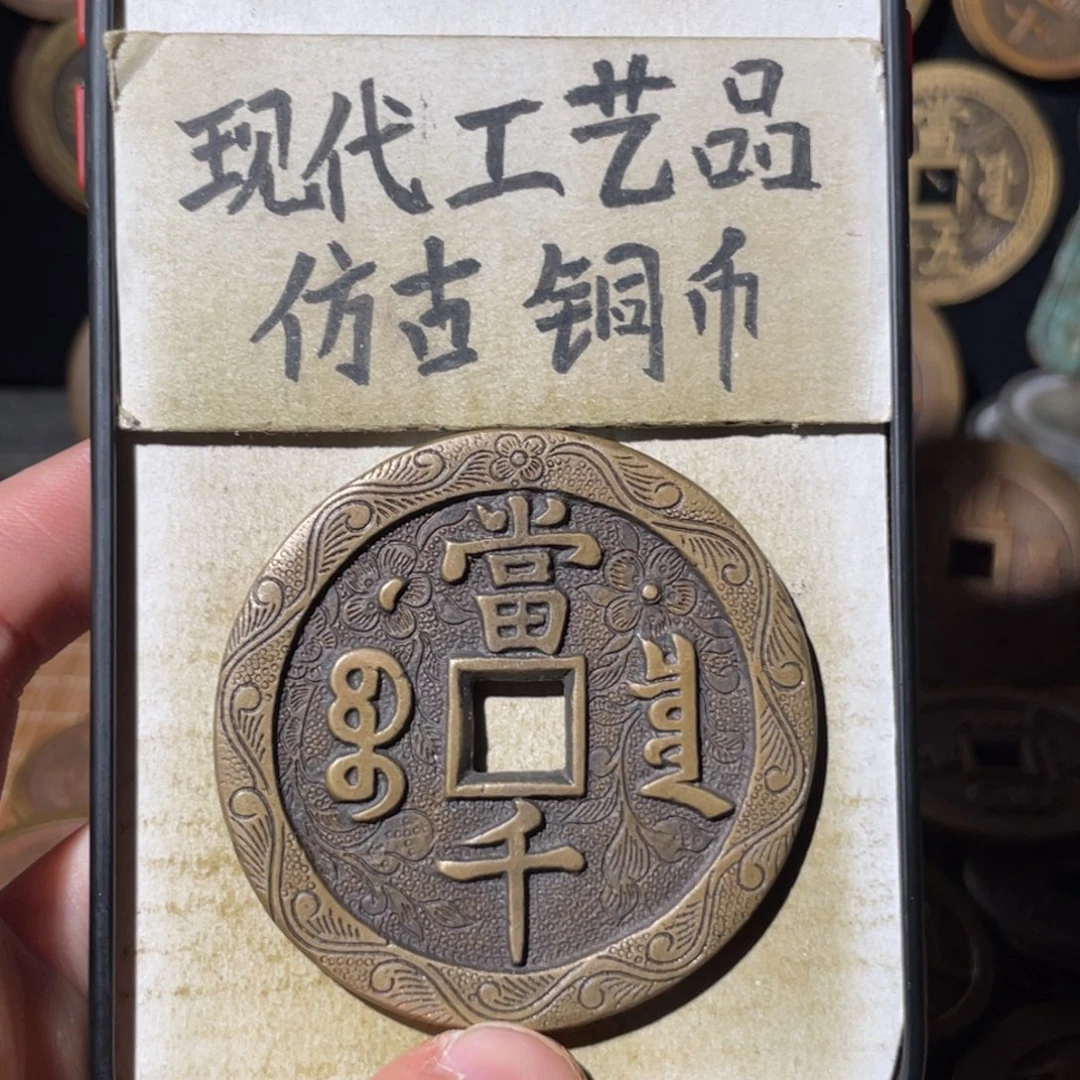 现代工艺品
仿古铜币
當
千